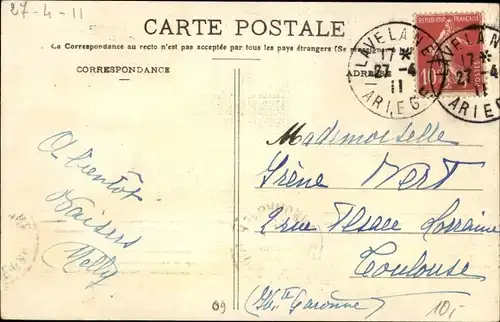 27-4-11
CARTE POSTALE
La Correspondance au recto n'est pas acceptée par tous les pays étrangers (Se
CORRESPONDANCE
ADRESSE
RÉPUBLIQUE FRANÇAISE
10
LAVELANET
17 *
27 -4
11
ARIEGE
LAVELANET
17 *
27 -4
11
ARIEGE
A bientôt
Baisers
Nelly
Mademoiselle
Irène
2 rue Alsace Lorraine
Toulouse
(Hte Garonne)
69
10,-